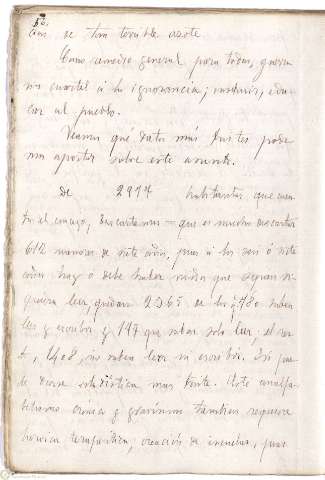 56.
de tan terrible azote.
Como remedio general para todos, guerra
sin cuartel á la ignorancia; instruir, edu-
car al pueblo.
Veamos qué datos más tristes pode-
mos aportar sobre este asunto.
De 2977 habitantes que cuen-
ta el concejo, descartamos — que es mucho descartar
612 menores de siete años, pues á los seis ó siete
años hay ó debe haber niños que sepan si-
quiera leer, quedan 2365 de los q. 780 saben
leer y escribir y 177 que saben solo leer; el res-
to, 1408, no saben leer ni escribir. No pue-
de darse estadística mas triste. Este analfa-
betismo crónico y gravísimo tambien requiere
heroica terapéutica; creación de escuelas, pues